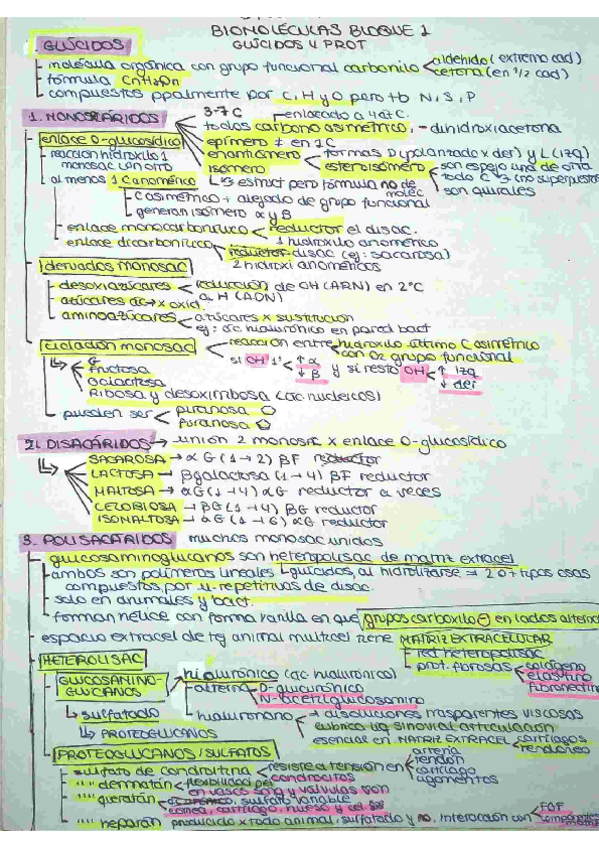 BIOMOLÉCULAS BLOQUE 1
GLÚCIDOS Y PROT
GLÚCIDOS
molécula orgánica con grupo funcional carbonilo
aldehido (extremo cad)
cetona (en 1/2 cad)
fórmula CnH2nOn
compuestos ppalmente por C, H y O pero tb N, S, P
1. MONOSACÁRIDOS
3-7 C
enlazado a 4 at C.
todos carbono asimétrico, - dihidroxiacetona
epímero ≠ en 1C
enantiómero
formas D (polarizado x der) y L (izq)
isómero
estereoisómero
son espejo una de otra
todo C
son quirales
enlace O-glucosídico
reacción hidroxilo 1
monosac con otro
al menos 1 C anomérico
estruct pero fórmula no de
molec
C asimétrico + alejado de grupo funcional
generan isómero α y β
enlace monocarbonílico
reductor el disac.
enlace dicarbonílico
1 hidroxilo anomérico
reductor disac (ej: sacarosa)
2 hidroxi anoméricos
derivados monosac
desoxiazúcares
reducción de OH (ARN) en 2ºC
a H (ADN)
azúcares ac → x oxid.
aminoazúcares
azúcares x sustitución
ej: ác hialurónico en pared bact
ciclación monosac
reacción entre hidroxilo último C asimétrico
con O2 grupo funcional
si OH 1' ↑ α ↓ β y si resto OH ↑ izq ↓ der
G
fructosa
galactosa
Ribosa y desoxirribosa (ác nucleicos)
pueden ser
piranosa
furanosa
2. DISACÁRIDOS → unión 2 monosac x enlace O-glucosídico
SACAROSA → αG (1→2) βF reductor
LACTOSA → βgalactosa (1→4) βF reductor
MALTOSA → αG (1→4) αG reductor a veces
CELOBIOSA → βG (1→4) βG reductor
ISOMALTOSA → αG (1→6) αG reductor
3. POLISACÁRIDOS muchos monosac unidos
glucosaminoglucanos son heteropolisac de matriz extracel
ambos son polímeros lineales
glúcidos, al hidrolizarse = 2 o + tipos osas
compuestos por u. repetitivas de disac.
solo en animales y bact.
forman hélice con forma varilla en que grupos carboxilo ⊖ en lados alterna
espacio extracel de tej animal multicel tiene MATRIZ EXTRACELULAR
red heteropolisac
prot. fibrosas
colágeno
elastina
fibronectin
HETEROLISAC
GLUCOSAMINO-
GLUCANOS
hialurónico (ác hialurónico)
alterna
D-glucurónico
N-acetilglucosamina
sulfatado
PROTEOGLUCANOS
hialuronano
disoluciones trasparentes viscosas
lubrica líq sinovial articulación
esencial en MATRIZ EXTRACEL
cartílagos
tendones
PROTEOGLUCANOS / SULFATOS
sulfato de condroitina
resistencia tensión en
arteria
tendón
cartílago
ligamentos
"" dermatán
flexibilidad piel
condrocitos
en vasos sang y válvulas son
"" queratán
sulfato variable
córnea, cartílago, hueso y cel
"" heparán
producido x todo animal, sulfatado y no, interacción con
FGF
componentes